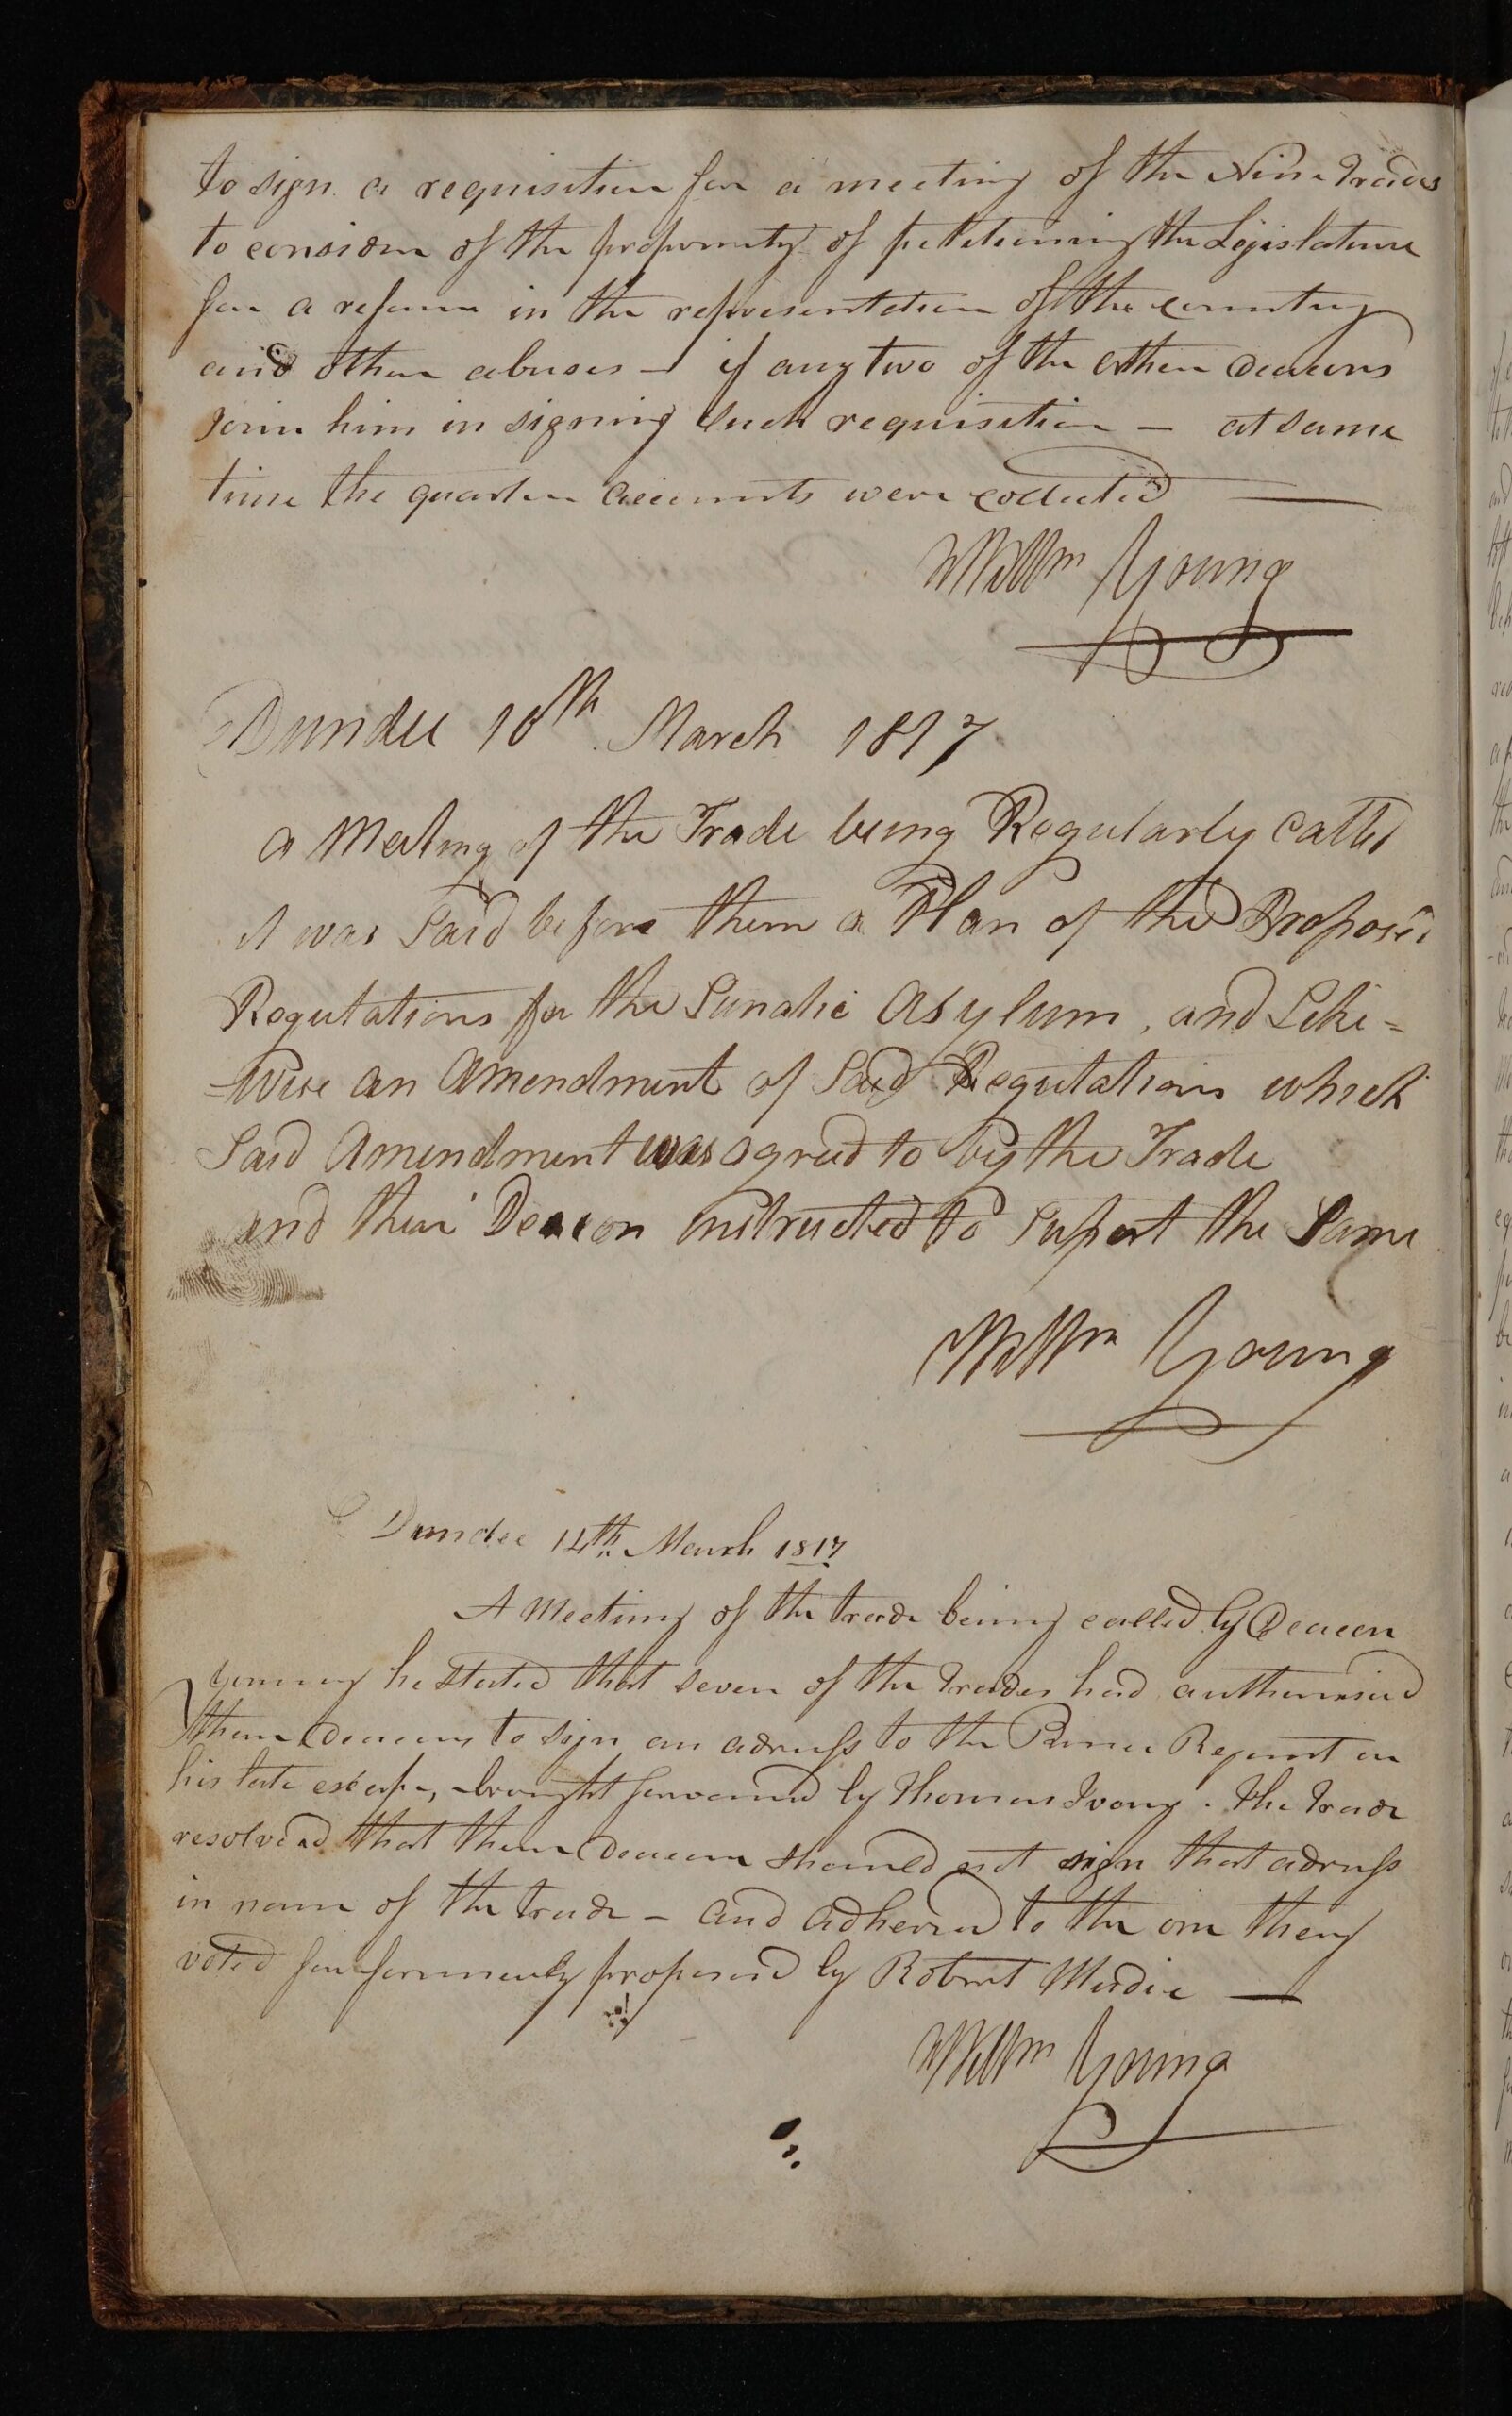 to sign a requisition for a meeting of the Nine Trades
to consider of the propernity of petitioning the Legislature
for a reform in the representation of the country
and other abuses — if any two of the other deacons
Join him in signing such requisition — at same
time the quarter accounts were collected
Willm Young
Dundee 10th March 1817
a Meeting of the Trade being Regularly Called
it was Laid before them a Plan of the Proposed
Regulations for the Lunatic Asylum, and Like=
=Wise an Amendment of Said Regulations which
Said Amendment was agreed to by the Trade
and their Deacon instructed to Suport the Same
Willm Young
Dundee 14th March 1817
A Meeting of the trade being called by Deacon
Young he stated that seven of the trades had authorised
their deacons to sign an adress to the Prince Regent on
his late escape, brought forward by Thomas Ivory. the trade
resolved that their Deacon should not sign that adress
in name of the trade — and adhered to the one they
voted for formerly proposed by Robert Mudie —
Willm Young